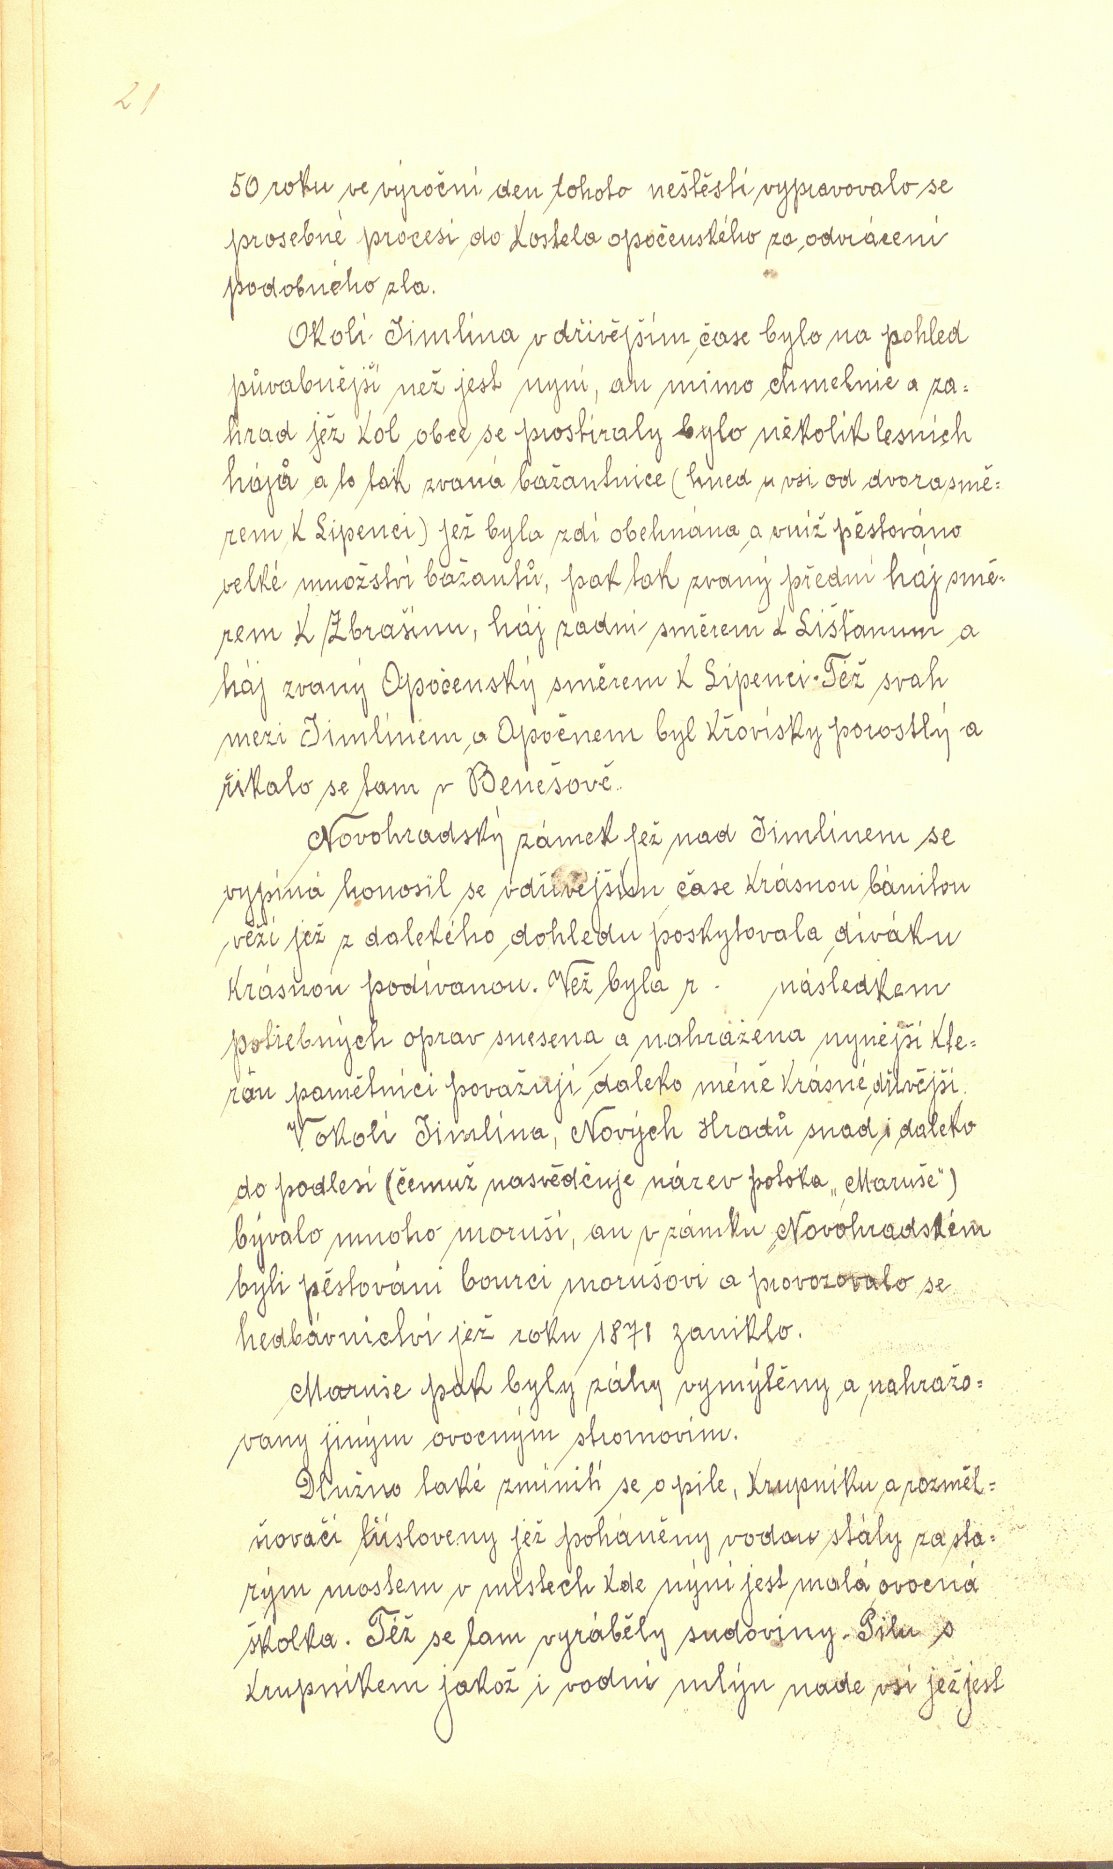 21
50 roku ve výroční den tohoto neštěstí vypravovalo se
prosebné procesí do kostela opočenského za odvrácení
podobného zla.
Okolí Jimlína v dřívějším čase bylo na pohled
půvabnější než jest nyní, an mimo chmelnic a za=
hrad jež kol obce se prostíraly bylo několik lesních
hájů a to tak zvaná bažantnice (hned u vsi od dvora smě=
rem k Lipenci) jež byla zdí obehnána a vníž pěstováno
velké množství bažantů, pak tak zvaný přední háj smě=
rem k Zbrašínu, háj zadní směrem k Lišťanum a
háj zvaný Opočenský směrem k Lipenci. Též svah
mezi Jimlínem a Opočnem byl křovisky porostlý a
říkalo se tam v Benešově.
Novohradský zámek jež nad Jimlínem se
vypíná honosil se vdřívějším čase krásnou bánitou
věží jež z dalekého dohledu poskytovala diváku
krásnou podívanou. Věž byla r. následkem
potřebných oprav snesena a nahražena nynější kte=
rou pamětníci považují daleko méně krásné dřívější.
V okolí Jimlína, Nových Hradů snad i daleko
do podlesí (čemuž nasvědčuje název potoka „Maruše")
bývalo mnoho moruší, an v zámku Novohradském
byli pěstováni bourci morušoví a provozovalo se
hedbávnictví jež roku 1871 zaniklo.
Maruše pak byly záhy vymýtěny a nahražo=
vány jiným ovocným stromovím.
Dlužno také zmíniti se o pile, krupníku a rozměl=
ňovači třísloveny jež poháněny vodou stály za sta=
rým mostem v místech kde nýní jest malá ovocná
školka. Též se tam vyráběly sudoviny. Pilu s
krupníkem jakož i vodní mlýn nade vsí jež jest